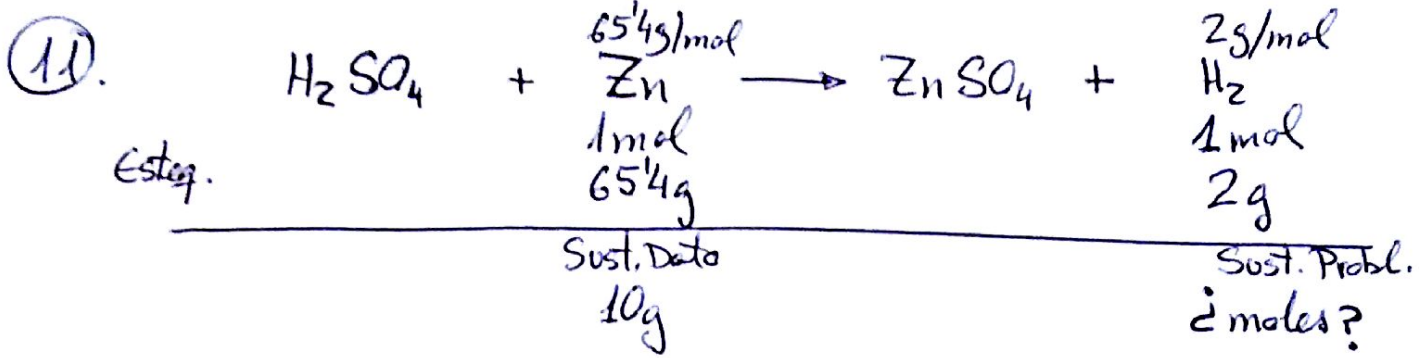 11.
65'4g/mol 2g/mol
H₂SO₄ + Zn ⟶ ZnSO₄ + H₂
1mol 1mol
Esteq. 65'4g 2g
Sust. Dato Sust. Probl.
10g ¿moles?